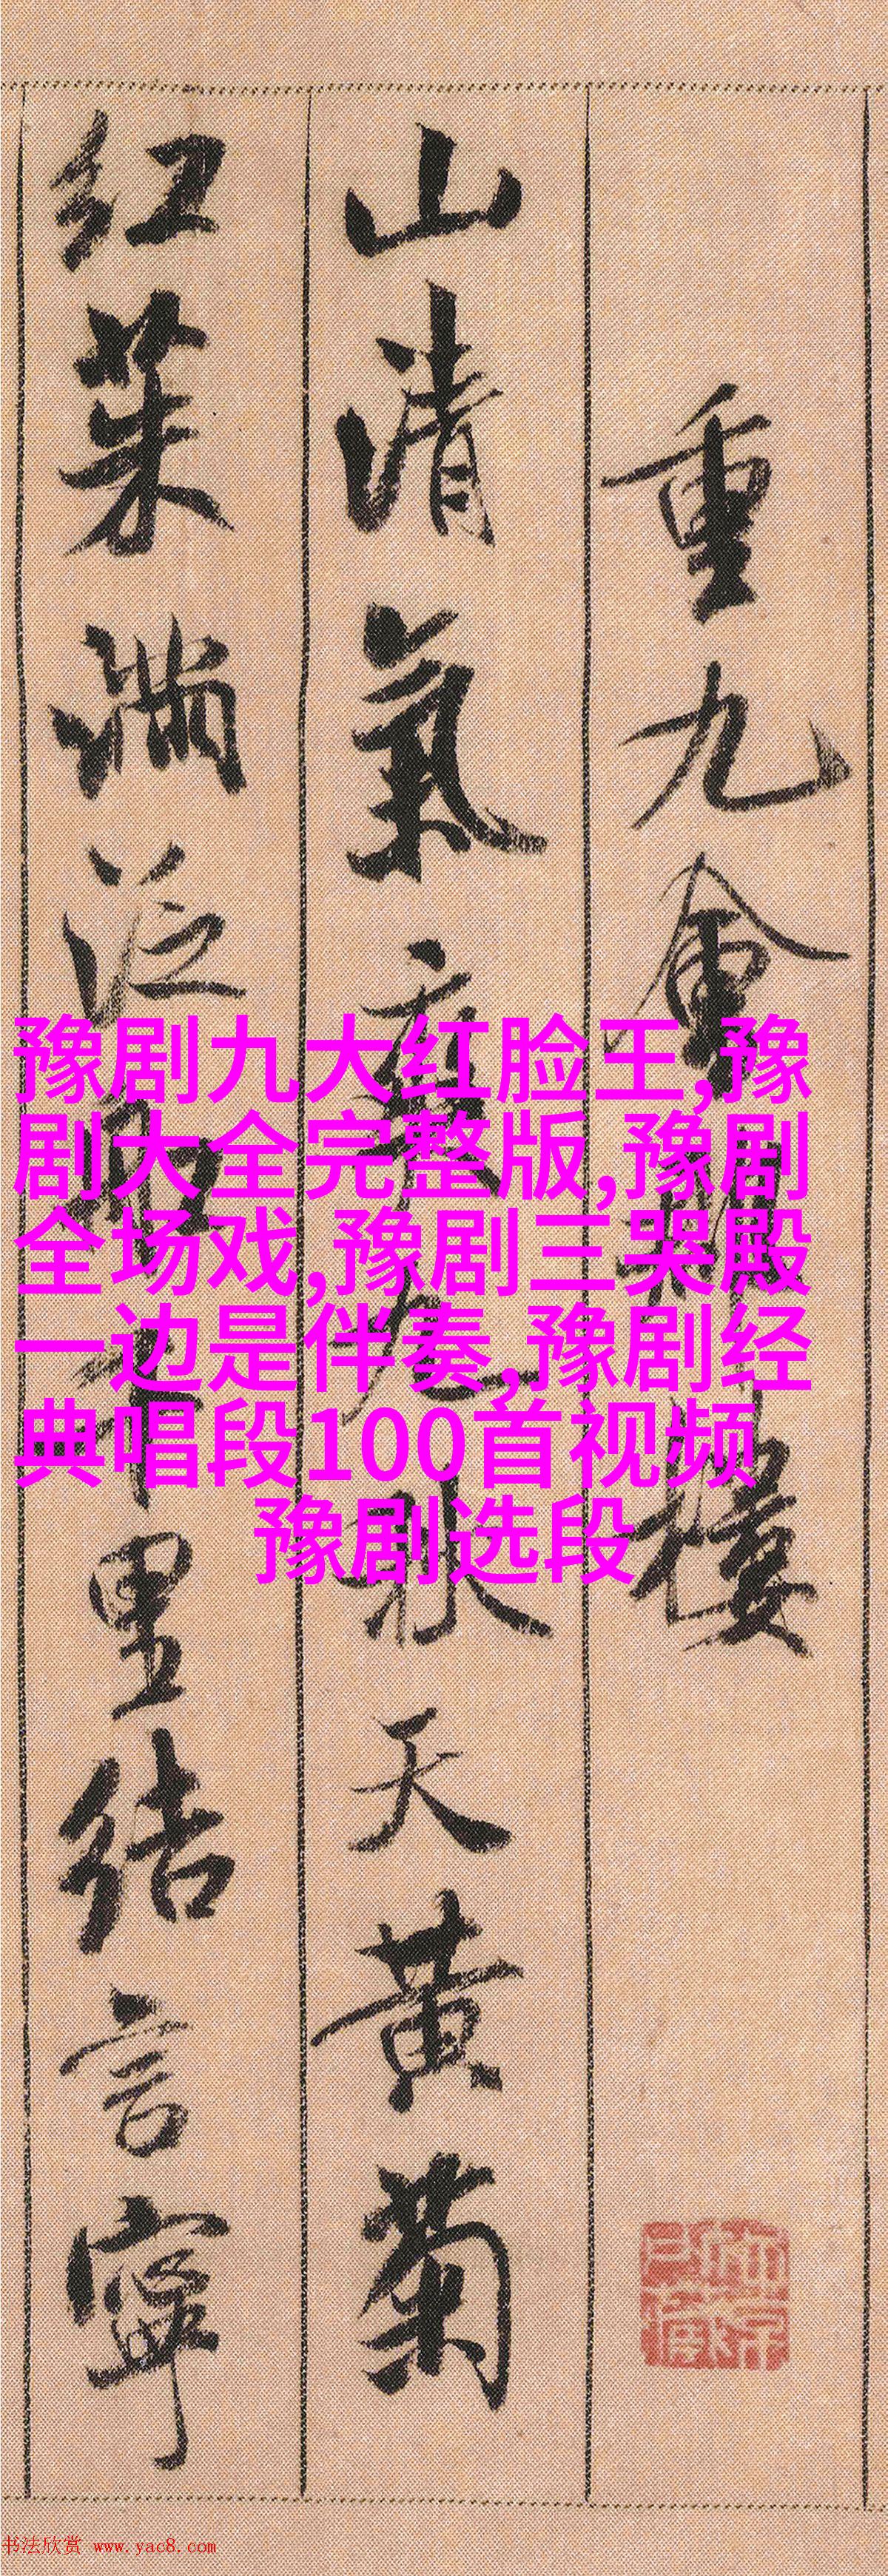 重九会郡楼
山清气爽九秋天黄菊
红茱满泛船千里结言宁
豫剧九大红脸王,豫
剧大全完整版,豫剧
全场戏,豫剧三哭殿
一边是伴奏,豫剧经
典唱段100首视频
豫剧选段
书法欣赏 www.yac8.com